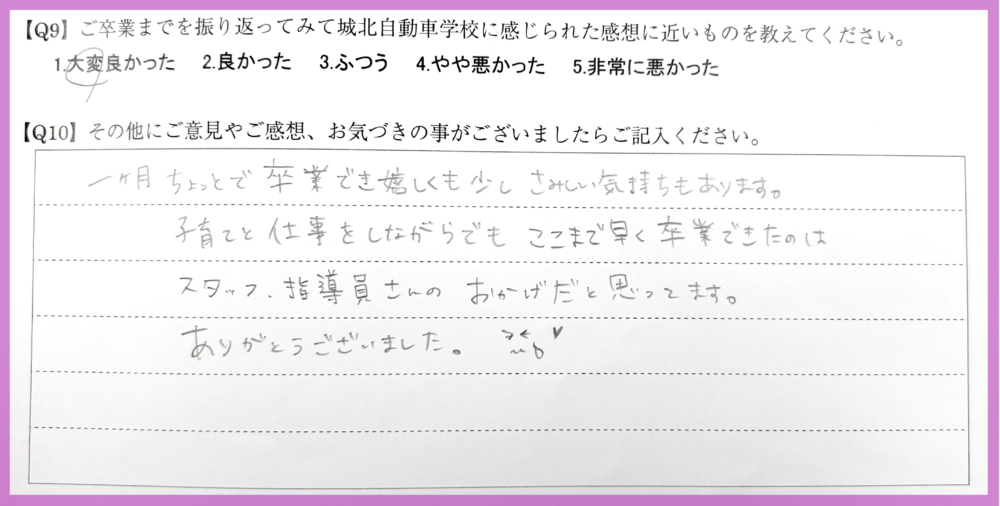 【Q9】ご卒業までを振り返ってみて城北自動車学校に感じられた感想に近いものを教えてください。
1.大変良かった 2.良かった 3.ふつう 4.やや悪かった 5.非常に悪かった
【Q10】その他にご意見やご感想、お気づきの事がございましたらご記入ください。
一ヶ月ちょっとで卒業でき嬉しくも少しさみしい気持ちもあります。
子育てと仕事をしながらでもここまで早く卒業できたのは
スタッフ、指導員さんのおかげだと思ってます。
ありがとうございました。